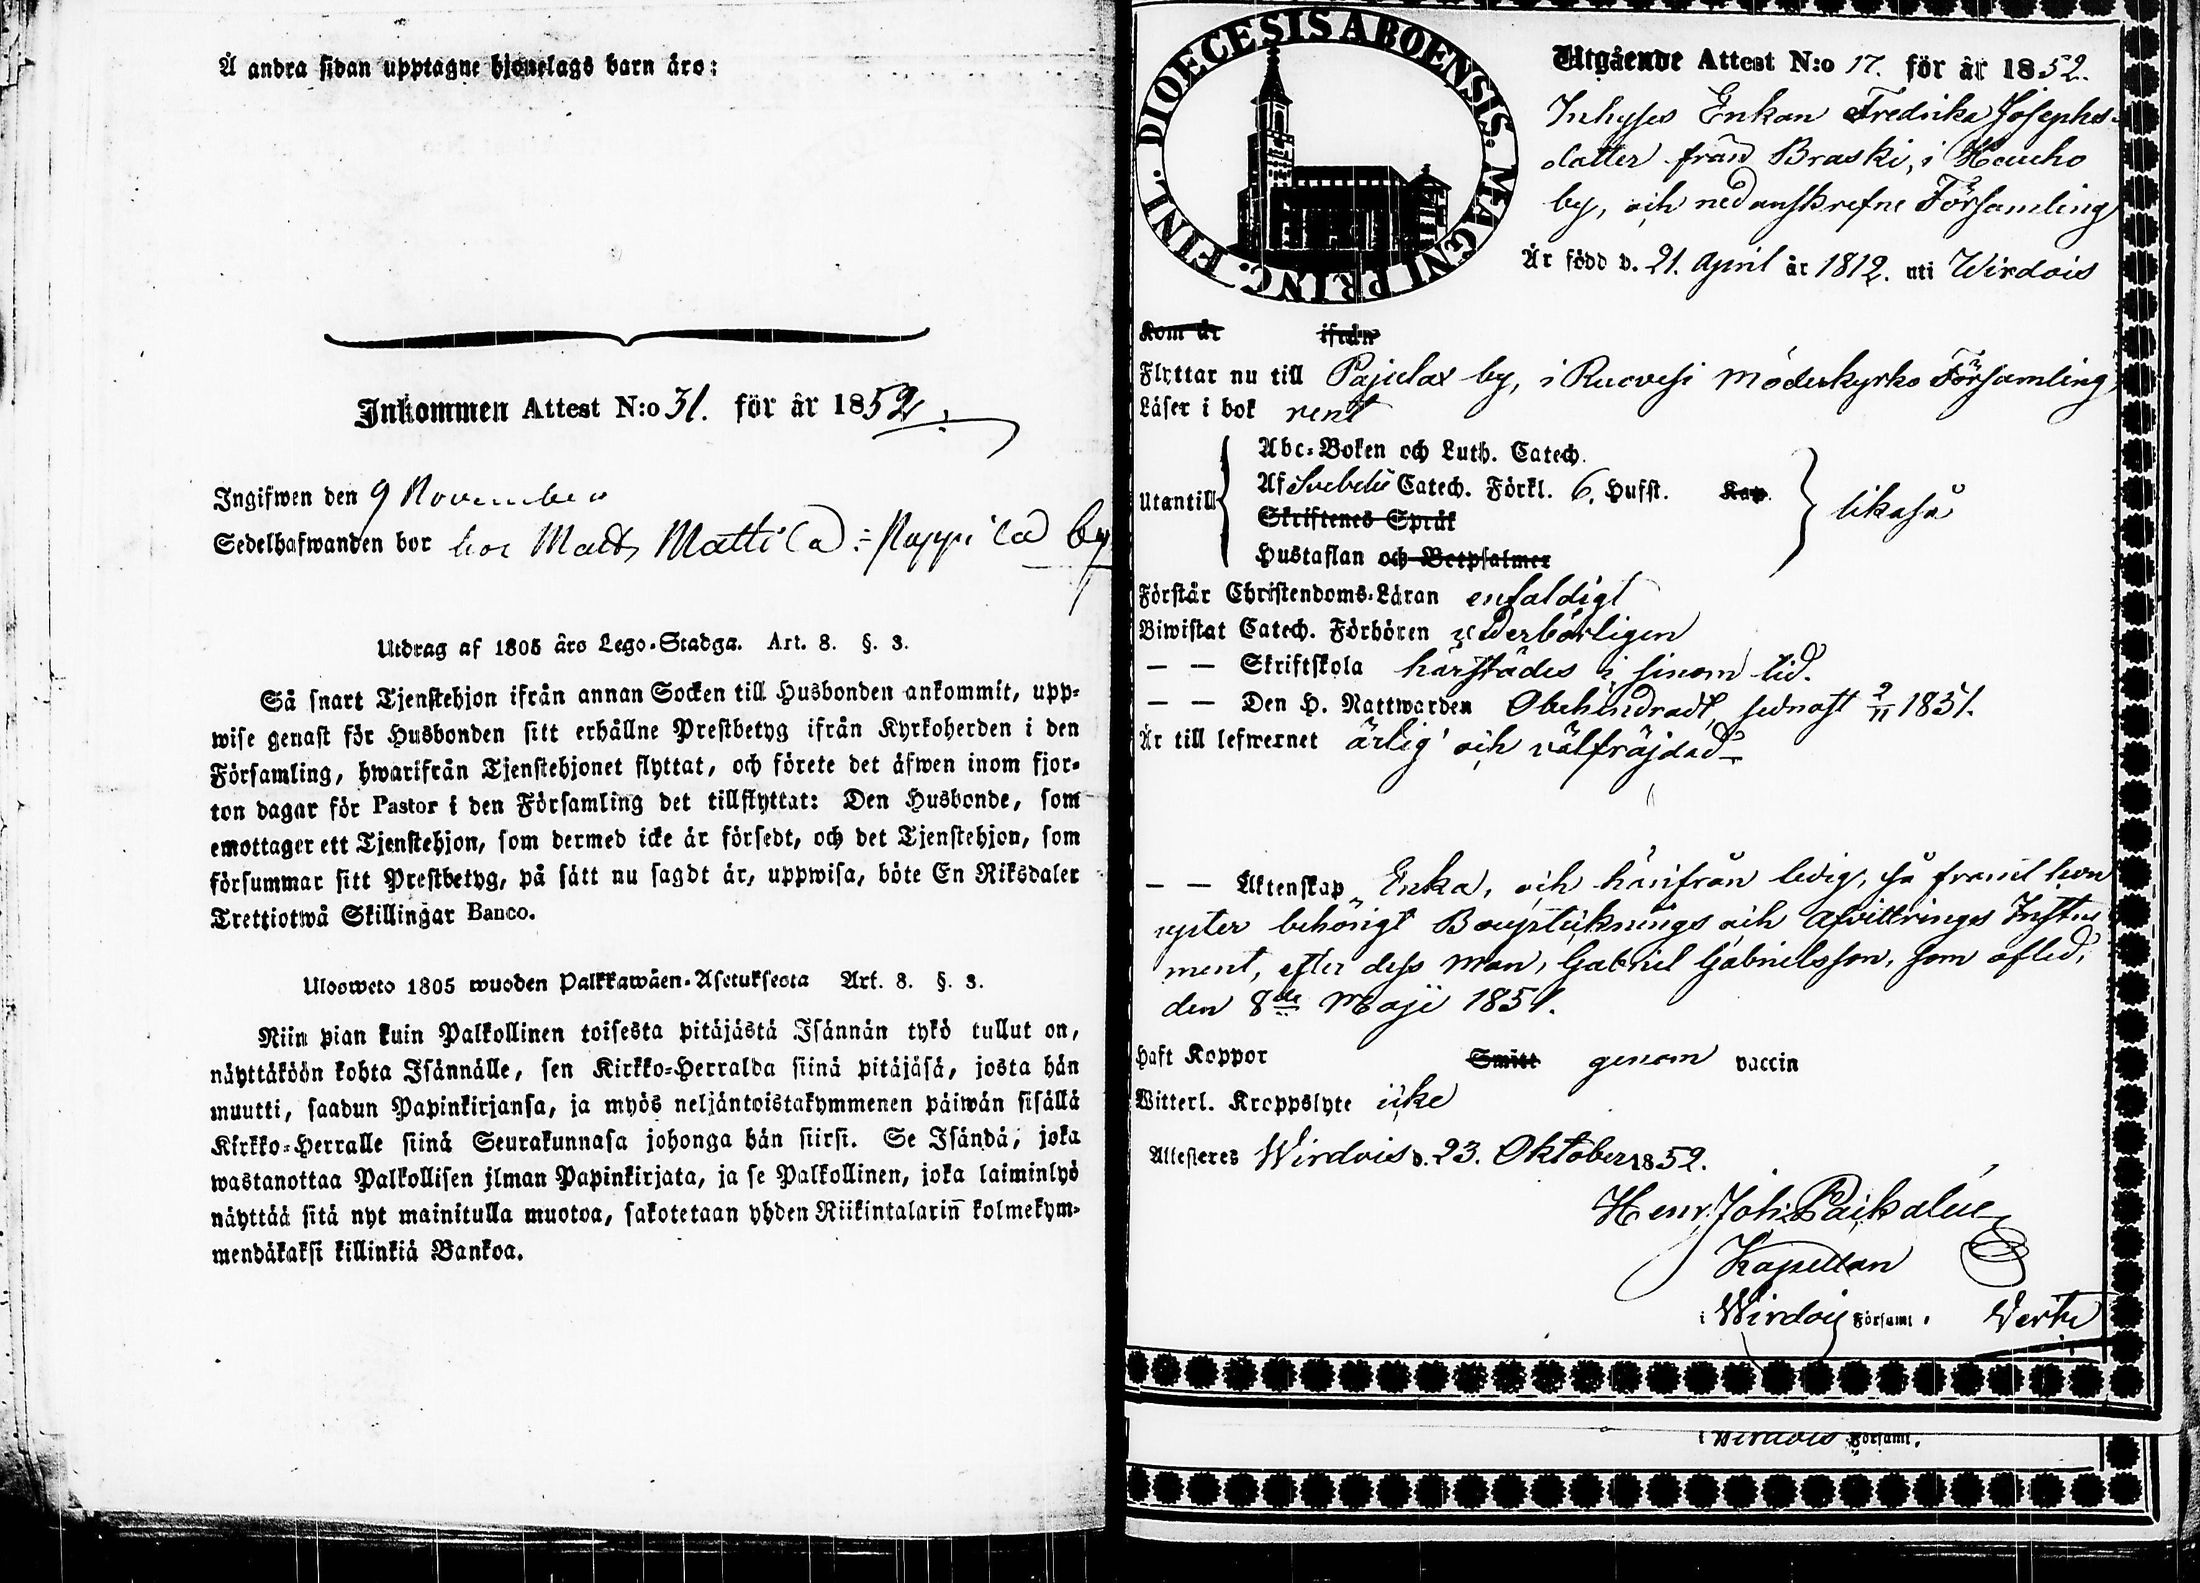 Å andra sidan upptagne hjonelags barn äro:
Inkommen Attest N:o 31. för år 1852.
Ingifwen den 9 November
Sedelhafwanden bor hos Matts Mattila by
Utdrag af 1805 års Lego-Stadga. Art. 8. §. 3.
Så snart Tjenstehjon ifrån annan Socken till Husbonden ankommit, upp-
wise genast för Husbonden sitt erhållne Prestbetyg ifrån Kyrkoherden i den
Församling, hwarifrån Tjenstehjonet flyttat, och förete det äfwen inom fjor-
ton dagar för Pastor i den Församling det tillflyttat: Den Husbonde, som
emottager ett Tjenstehjon, som dermed icke är försedt, och det Tjenstehjon, som
försummar sitt Prestbetyg, på sätt nu sagdt är, uppwisa, böte En Riksdaler
Trettiotwå Skillingar Banco.
Uloosweto 1805 wuoden Palkkawäen-Asetuksesta Art. 8. §. 3.
Niin pian kuin Palkollinen toisesta pitäjästä Isännän tykö tullut on,
näyttäköön kohta Isännälle, sen Kirkko-Herralda siinä pitäjäsä, josta hän
muutti, saadun Papinkirjansa, ja myös neljäntoistakymmenen päiwän sisällä
Kirkko-Herralle siinä Seurakunnasa johonga hän siirsi. Se Isändä, joka
wastanottaa Palkollisen ilman Papinkirjata, ja se Palkollinen, joka laiminlyö
näyttää sitä nyt mainitulla muotoa, sakotetaan yhden Riikintalarin̄ kolmekym-
mendäkaksi killinkiä Bankoa.
DIOECESIS ABOENSIS. MAGNI PRINC. FINL.
Utgående Attest N:o 17. för år 1852.
Inhyses Enkan Fredrika Josephs-
datter från Braski, i Hauho
by, och nedanskrefne Församling
Är född d. 21. April år 1812. uti Wirdois
Kom år ifrån
Flyttar nu till Pajulax by, i Ruovesi Moderkyrko Församling
Läser i bok rent
Abc-Boken och Luth. Catech.
Utantill Af Svebelii Catech. Förkl. 6. Hufst. Kap. likaså
Skriftenes Språk
Hustaflan och Botpsalmer
Förstår Christendoms-Läran enfaldigt
Biwistat Catech. Förhören vederbörligen
— — Skriftskola härstädes i sinom tid.
— — Den H. Nattwarden Obehindradt, sednast 2/11 1851.
Är till lefwernet ärlig och välfräjdad
— — Äktenskap Enka, och härifrån ledig, så framt hon
upter behörigt Bouptecknings och Afvittrings Instru
ment, efter dess man, Gabriel Gabrielsson, som afled,
den 8de Maji 1851.
Haft Koppor Smitt genom vaccin
Witterl. Kroppslyte icke
Attesteres Wirdois d. 23. Oktober 1852.
Henr. Joh. Paikalén
Kapellan
i Wirdois Församl. Verte
i Wirdois Församl.